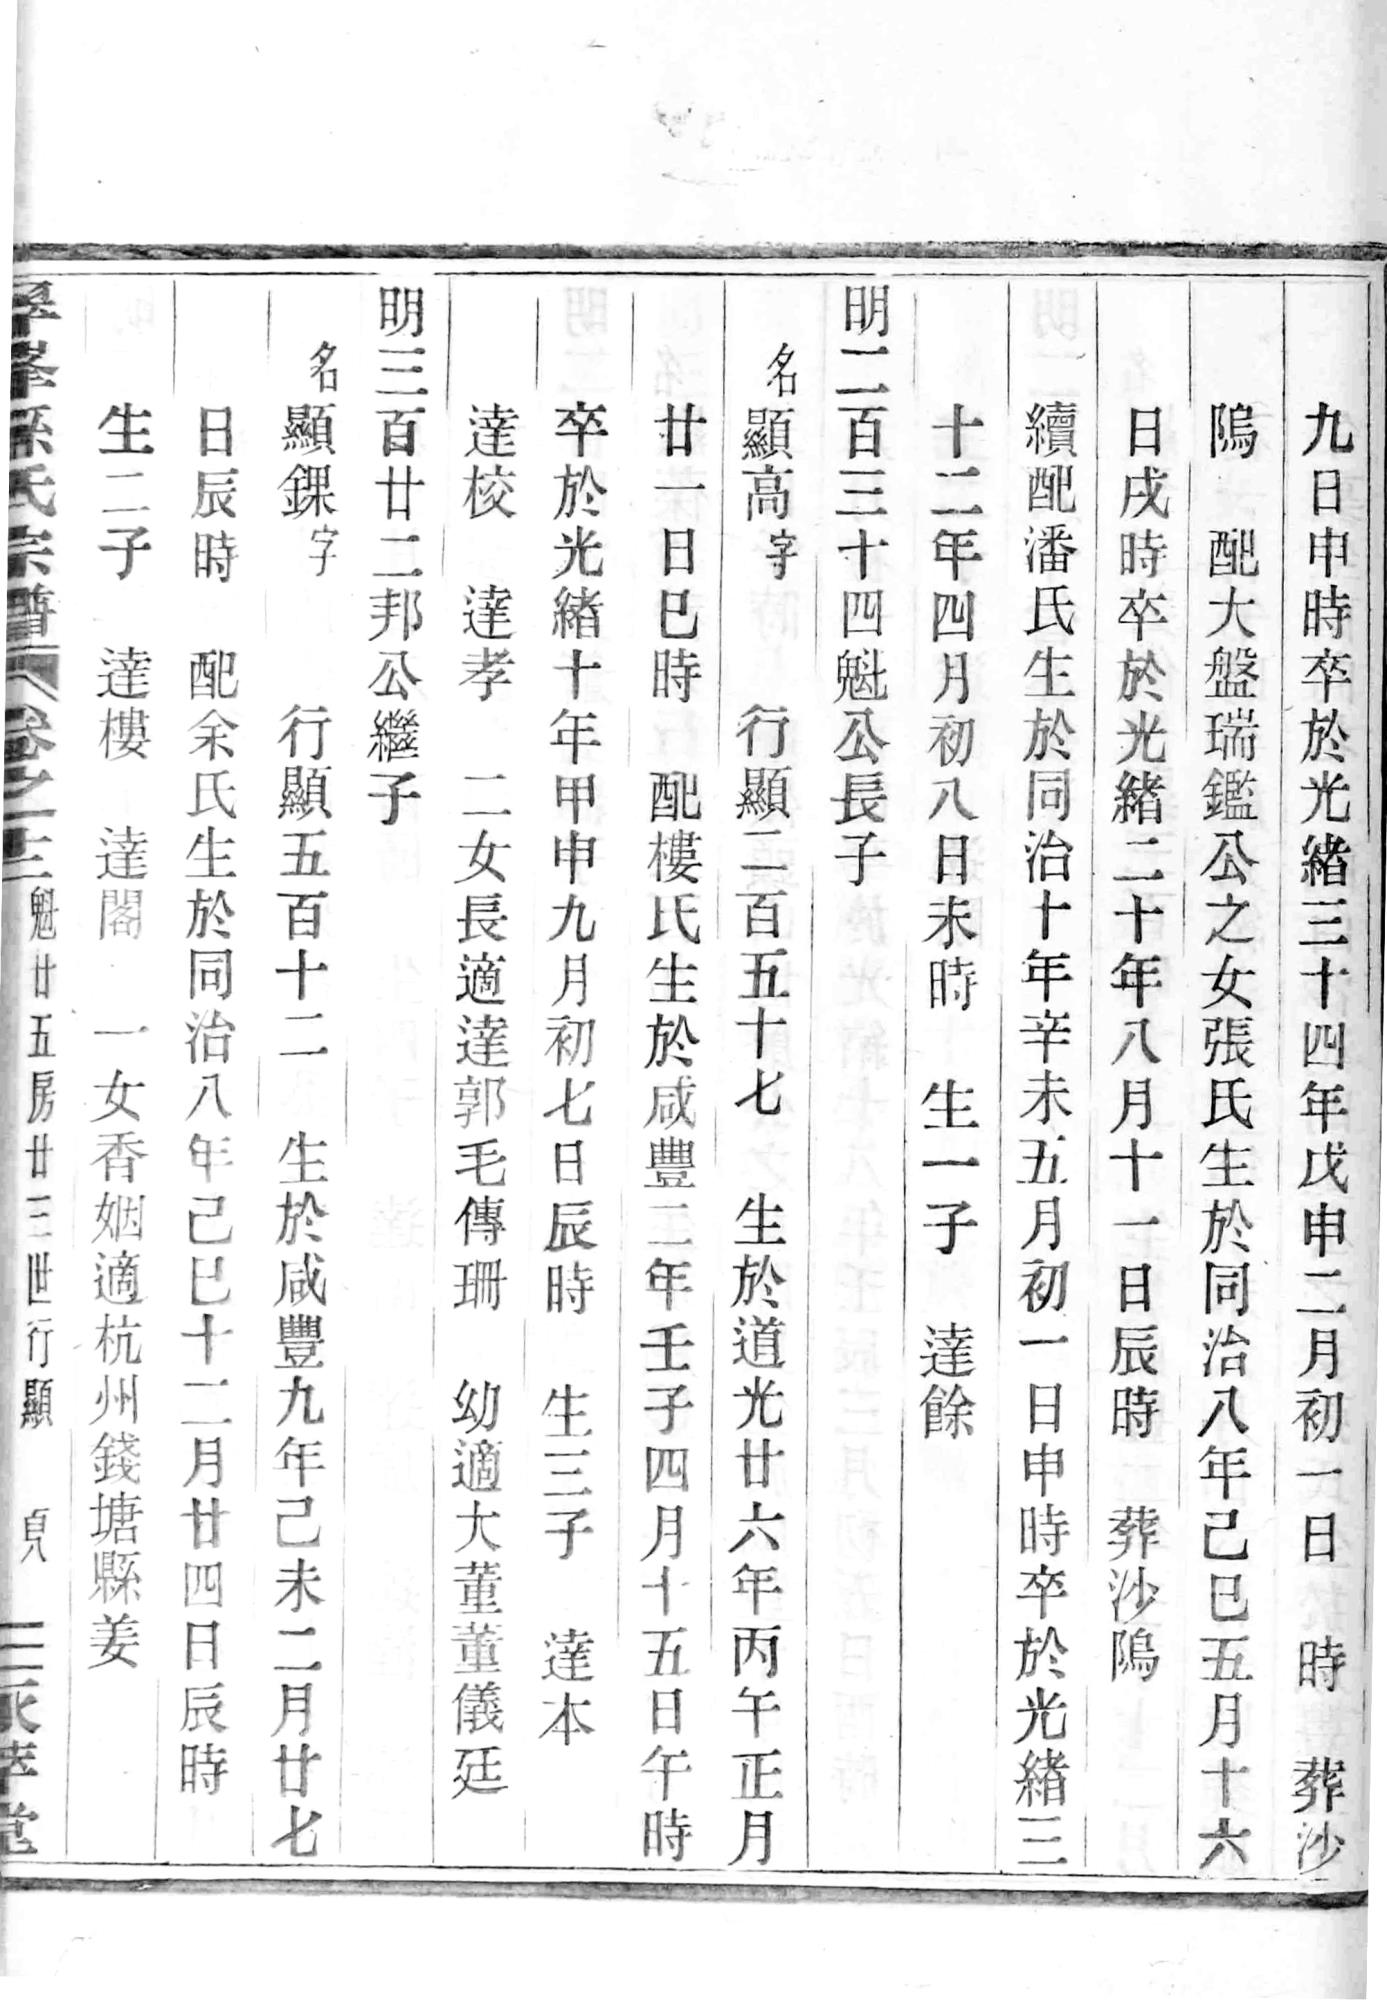 九日申時卒於光緒三十四年戊申二月初一日　時　葬沙
隖　配大盤瑞鑑公之女張氏生於同治八年己巳五月十六
日戌時卒於光緒二十年八月十一日辰時　葬沙隖
續配潘氏生於同治十年辛未五月初一日申時卒於光緒三
十二年四月初八日未時　生一子　達餘
明二百三十四魁公長子
名顯高字　行顯二百五十七　生於道光廿六年丙午正月
廿一日巳時　配樓氏生於咸豐二年壬子四月十五日午時
卒於光緒十年甲申九月初七日辰時　生三子　達本
達校　達孝　二女長適達郭毛傳珊　幼適大董董儀廷
明三百廿二邦公繼子
名顯錁字　行顯五百十二　生於咸豐九年己未二月廿七
日辰時　配余氏生於同治八年己巳十二月廿四日辰時
生二子　達樓　達閣　一女香姻適杭州錢塘縣姜
孫氏宗譜　卷之十三　魁廿五房廿三世行顯　貞　二　萃堂